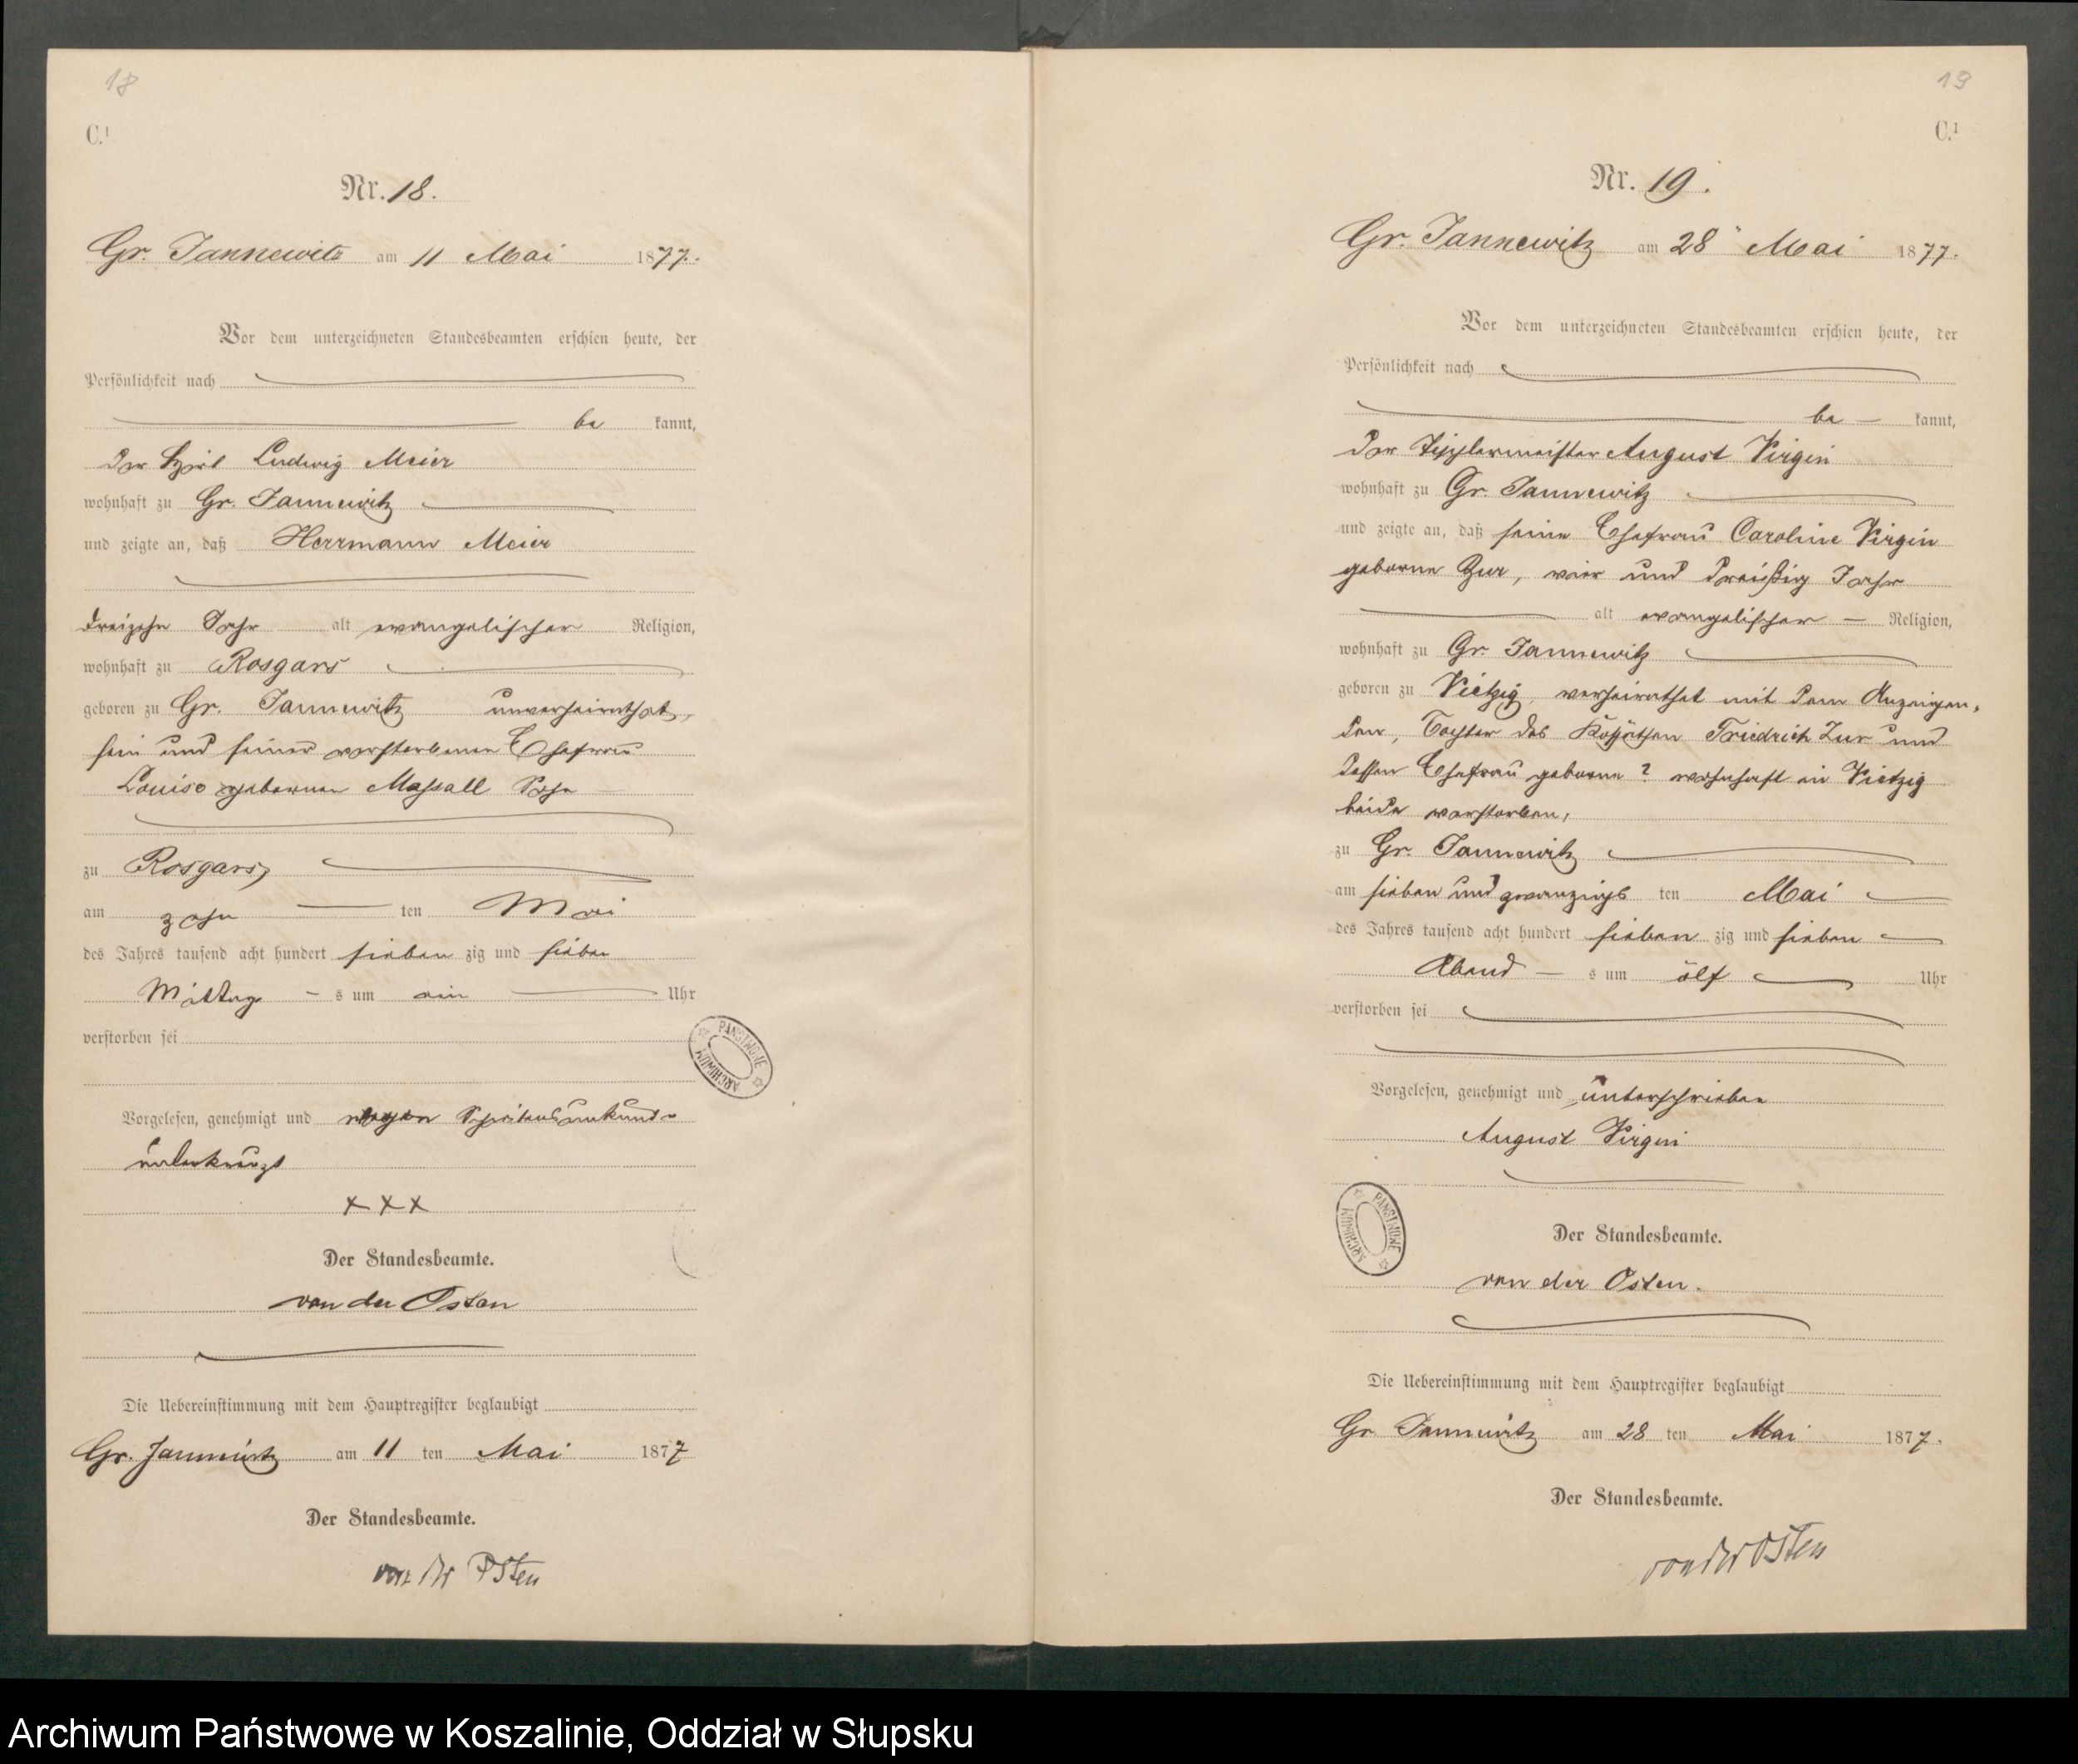 18
C.¹
Nr. 18.
Gr. Jannewitz am 11 Mai 1877.
Vor dem unterzeichneten Standesbeamten erschien heute, der
Persönlichkeit nach
be kannt,
der Hirt Ludwig Meier
wohnhaft zu Gr. Jannewitz
und zeigte an, daß Herrmann Meier
dreizehn Jahr alt evangelischer Religion,
wohnhaft zu Rosgars
geboren zu Gr. Jannewitz unverheirathet,
sein und seiner verstorbenen Ehefrau
Louise gebornen Massall Sohn
zu Rosgars,
am zehn ten Mai
des Jahres tausend acht hundert sieben zig und sieben
Mittag s um ein Uhr
verstorben sei
Vorgelesen, genehmigt und wegen Schreibensunkunde
unterkreuzt
XXX
Der Standesbeamte.
von der Osten
Die Uebereinstimmung mit dem Hauptregister beglaubigt
Gr. Jannewitz am 11 ten Mai 1877
Der Standesbeamte.
von der Osten
PAŃSTWOWE ARCHIWUM
19
C.¹
Nr. 19.
Gr. Jannewitz am 28 Mai 1877.
Vor dem unterzeichneten Standesbeamten erschien heute, der
Persönlichkeit nach
be kannt,
der Tischlermeister August Virgin
wohnhaft zu Gr. Jannewitz
und zeigte an, daß seine Ehefrau Caroline Virgin
geborne Zur, vier und dreißig Jahr
alt evangelischer Religion,
wohnhaft zu Gr. Jannewitz
geboren zu Vietzig, verheirathet mit dem Anzeigen-
den, Tochter des Kossäthen Friedrich Zur und
dessen Ehefrau geborne ? wohnhaft in Vietzig
beide verstorben,
zu Gr. Jannewitz
am sieben und zwanzigs ten Mai
des Jahres tausend acht hundert sieben zig und sieben
Abend s um ölf Uhr
verstorben sei
Vorgelesen, genehmigt und unterschrieben
August Virgin
PAŃSTWOWE ARCHIWUM
Der Standesbeamte.
von der Osten.
Die Uebereinstimmung mit dem Hauptregister beglaubigt
Gr. Jannewitz am 28 ten Mai 1877.
Der Standesbeamte.
von der Osten
Archiwum Państwowe w Koszalinie, Oddział w Słupsku